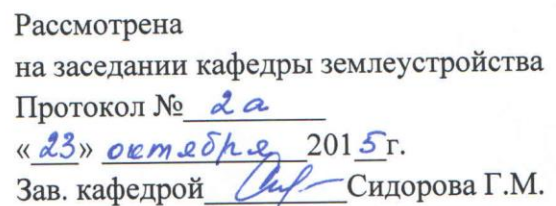 Рассмотрена
на заседании кафедры землеустройства
Протокол № 2а
«23» октября 2015г.
Зав. кафедрой Сидорова Г.М.